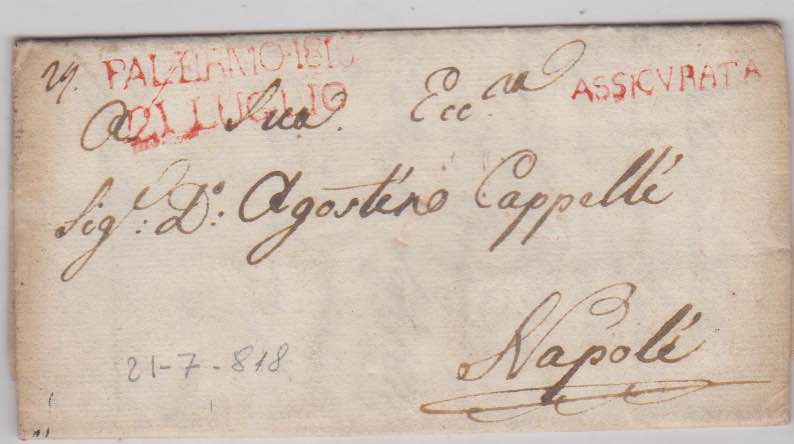 29.
PALERMO 181
21 LUGLIO
ASSICVRATA
A Sua Ecc.za
Sig.e D.n Agostino Cappelli
Napoli
21-7-818